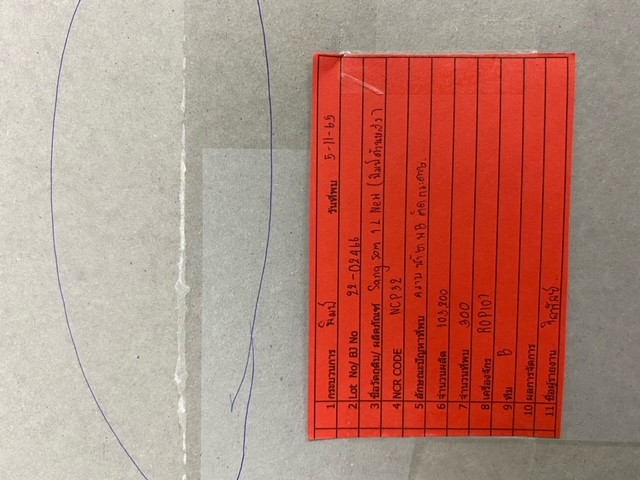 1 กระบวนการ พิมพ์ วันที่พบ 5-11-65
2 Lot No/ BJ No 22-02466
3 ชื่อวัตถุดิบ/ ผลิตภัณฑ์ Sang Som 1 L New (พิมพ์ด้านตรง)
4 NCR CODE NCP32
5 ลักษณะปัญหาที่พบ คราบ น้ำยา NB ติดกระดาษ
6 จำนวนผลิต 103,200
7 จำนวนที่พบ 300
8 เครื่องจักร ROP107
9 ทีม B
10 ผลการจัดการ
11 ชื่อผู้รายงาน